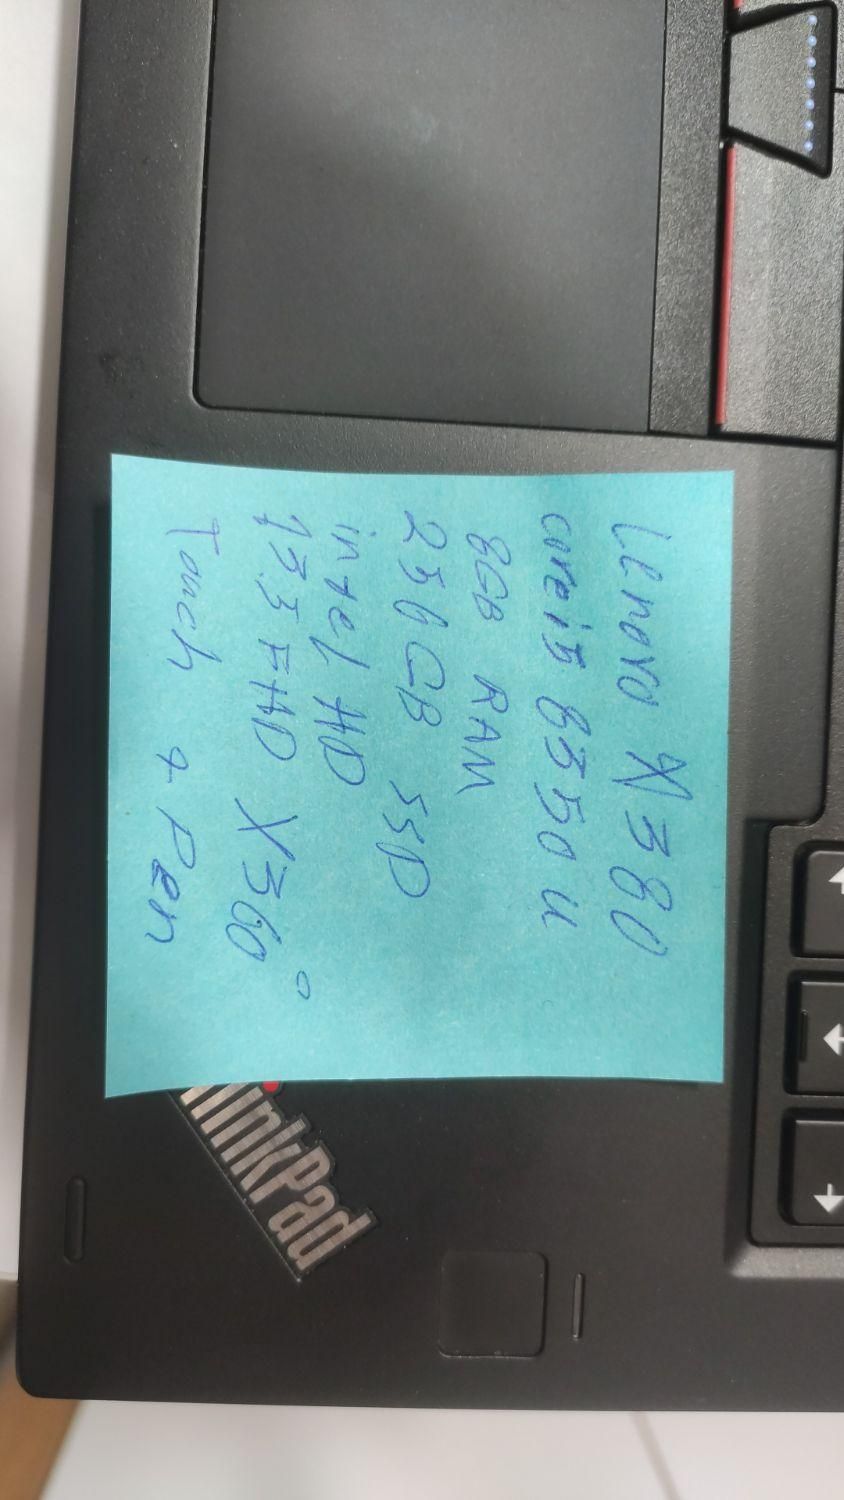 Lenovo X380
corei5 8350u
8GB RAM
256GB SSD
intel HD
133 FHD X360°
Touch + Pen
inkPad